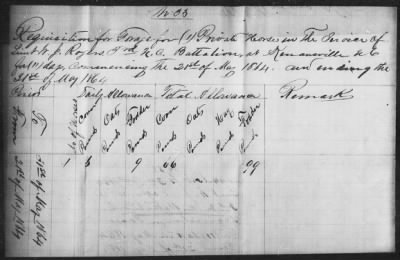 No 33
Requisition for Forage for (1) Private Horse in the Service of
Lieut W. J. Rogers N.C. Battalion, at Kenansville N.C
for (11) days, Commencing the 21st of May 1864. and ending the
31st of May 1864
Period Daily Allowance Total Allowance Remark
No of Horses Corn Oats Fodder Corn Oats Hay Fodder
Pounds Pounds Pounds Pounds Pounds Pounds Pounds
From To
21st of May 1864 31st of May 1864 1 6 9 66 99